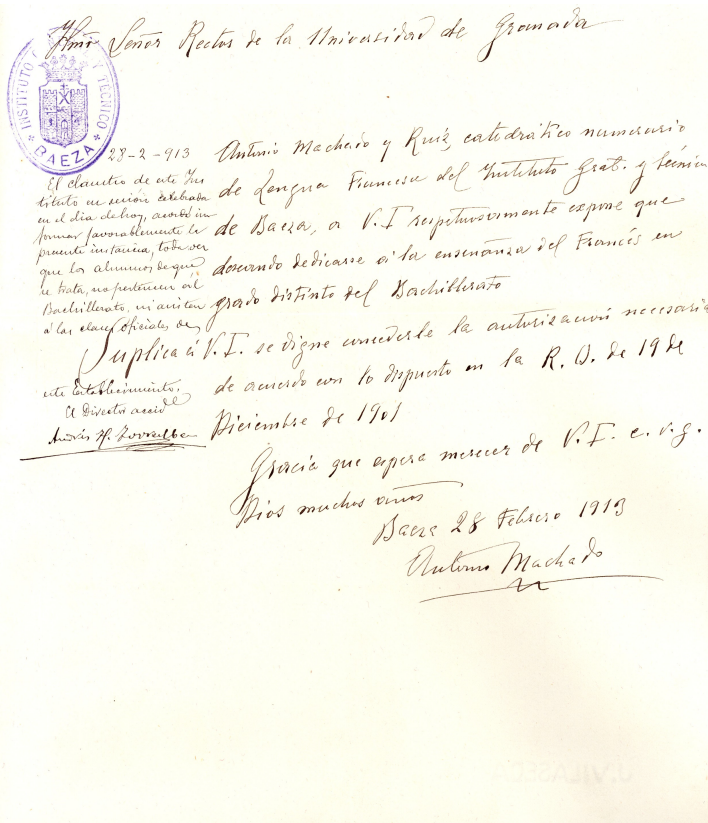 Ilmo Señor Rector de la Universidad de Granada
INSTITUTO G Y TECNICO
BAEZA
28-2-913
El claustro de este Ins
tituto en sesión celebrada
en el dia de hoy, acordó in
formar favorablemente la
presente instancia, toda vez
que los alumnos de que
se trata, no pertenecen al
Bachillerato, ni asisten
á las clases oficiales de
este Establecimiento.
El Director accidl
Andrés H. Torralba
Antonio Machado y Ruiz, catedrático numerario
de Lengua Francesa del Instituto Gral. y técnico
de Baeza, a V. I respetuosamente expone que
deseando dedicarse a la enseñanza del Francés en
grado distinto del Bachillerato
Suplica á V. I. se digne concederle la autorización necesaria
de acuerdo con lo dispuesto en la R. O. de 19 de
Diciembre de 1901
Gracia que espera merecer de V. I. c. v. g.
Dios muchos años
Baeza 28 Febrero 1913
Antonio Machado
J. VILASECA